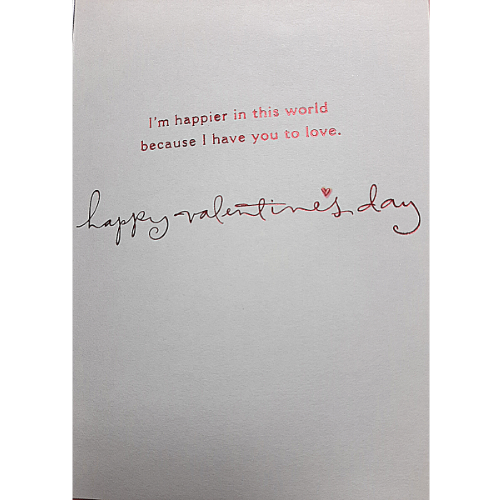 I'm happier in this world
because I have you to love.
happy valentine's day